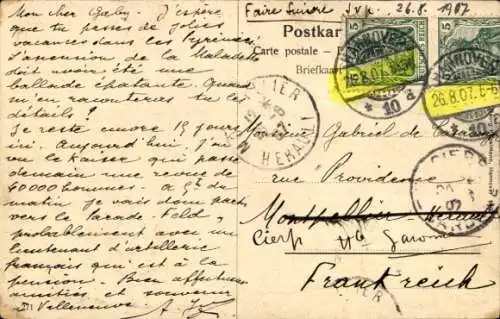 Mon cher Gaby. J'espère
que tu passes de jolies
vacances dans les Pyrénées
L'ascension de la Maladetta
doit avoir été une
ballade épatante. Quand
m'en raconteras tu les
détails?
Je reste encore 15 jours
ici. Aujourd'hui j'ai
vu le Kaiser qui passe
demain une revue de
60000 hommes. A 5h du
matin je vais donc partir
vers le Parade-Feld,
probablement avec un
lieutenant d'artillerie
français qui est à la
pension. Bien affectueuses
amitiés et souvenir
Villeneuve
Faire suivre S.v.p. 26.8.1907
Postkar
Carte postale
Briefkaar
5
HANNOVER
26.8.07.
* 10 a
HANNOVER
26.8.07.6-
HERAULT
CIERP
Monsieur Gabriel de
rue Providence
Montpellier Herault
Cierp Hte Garonne
Frankreich